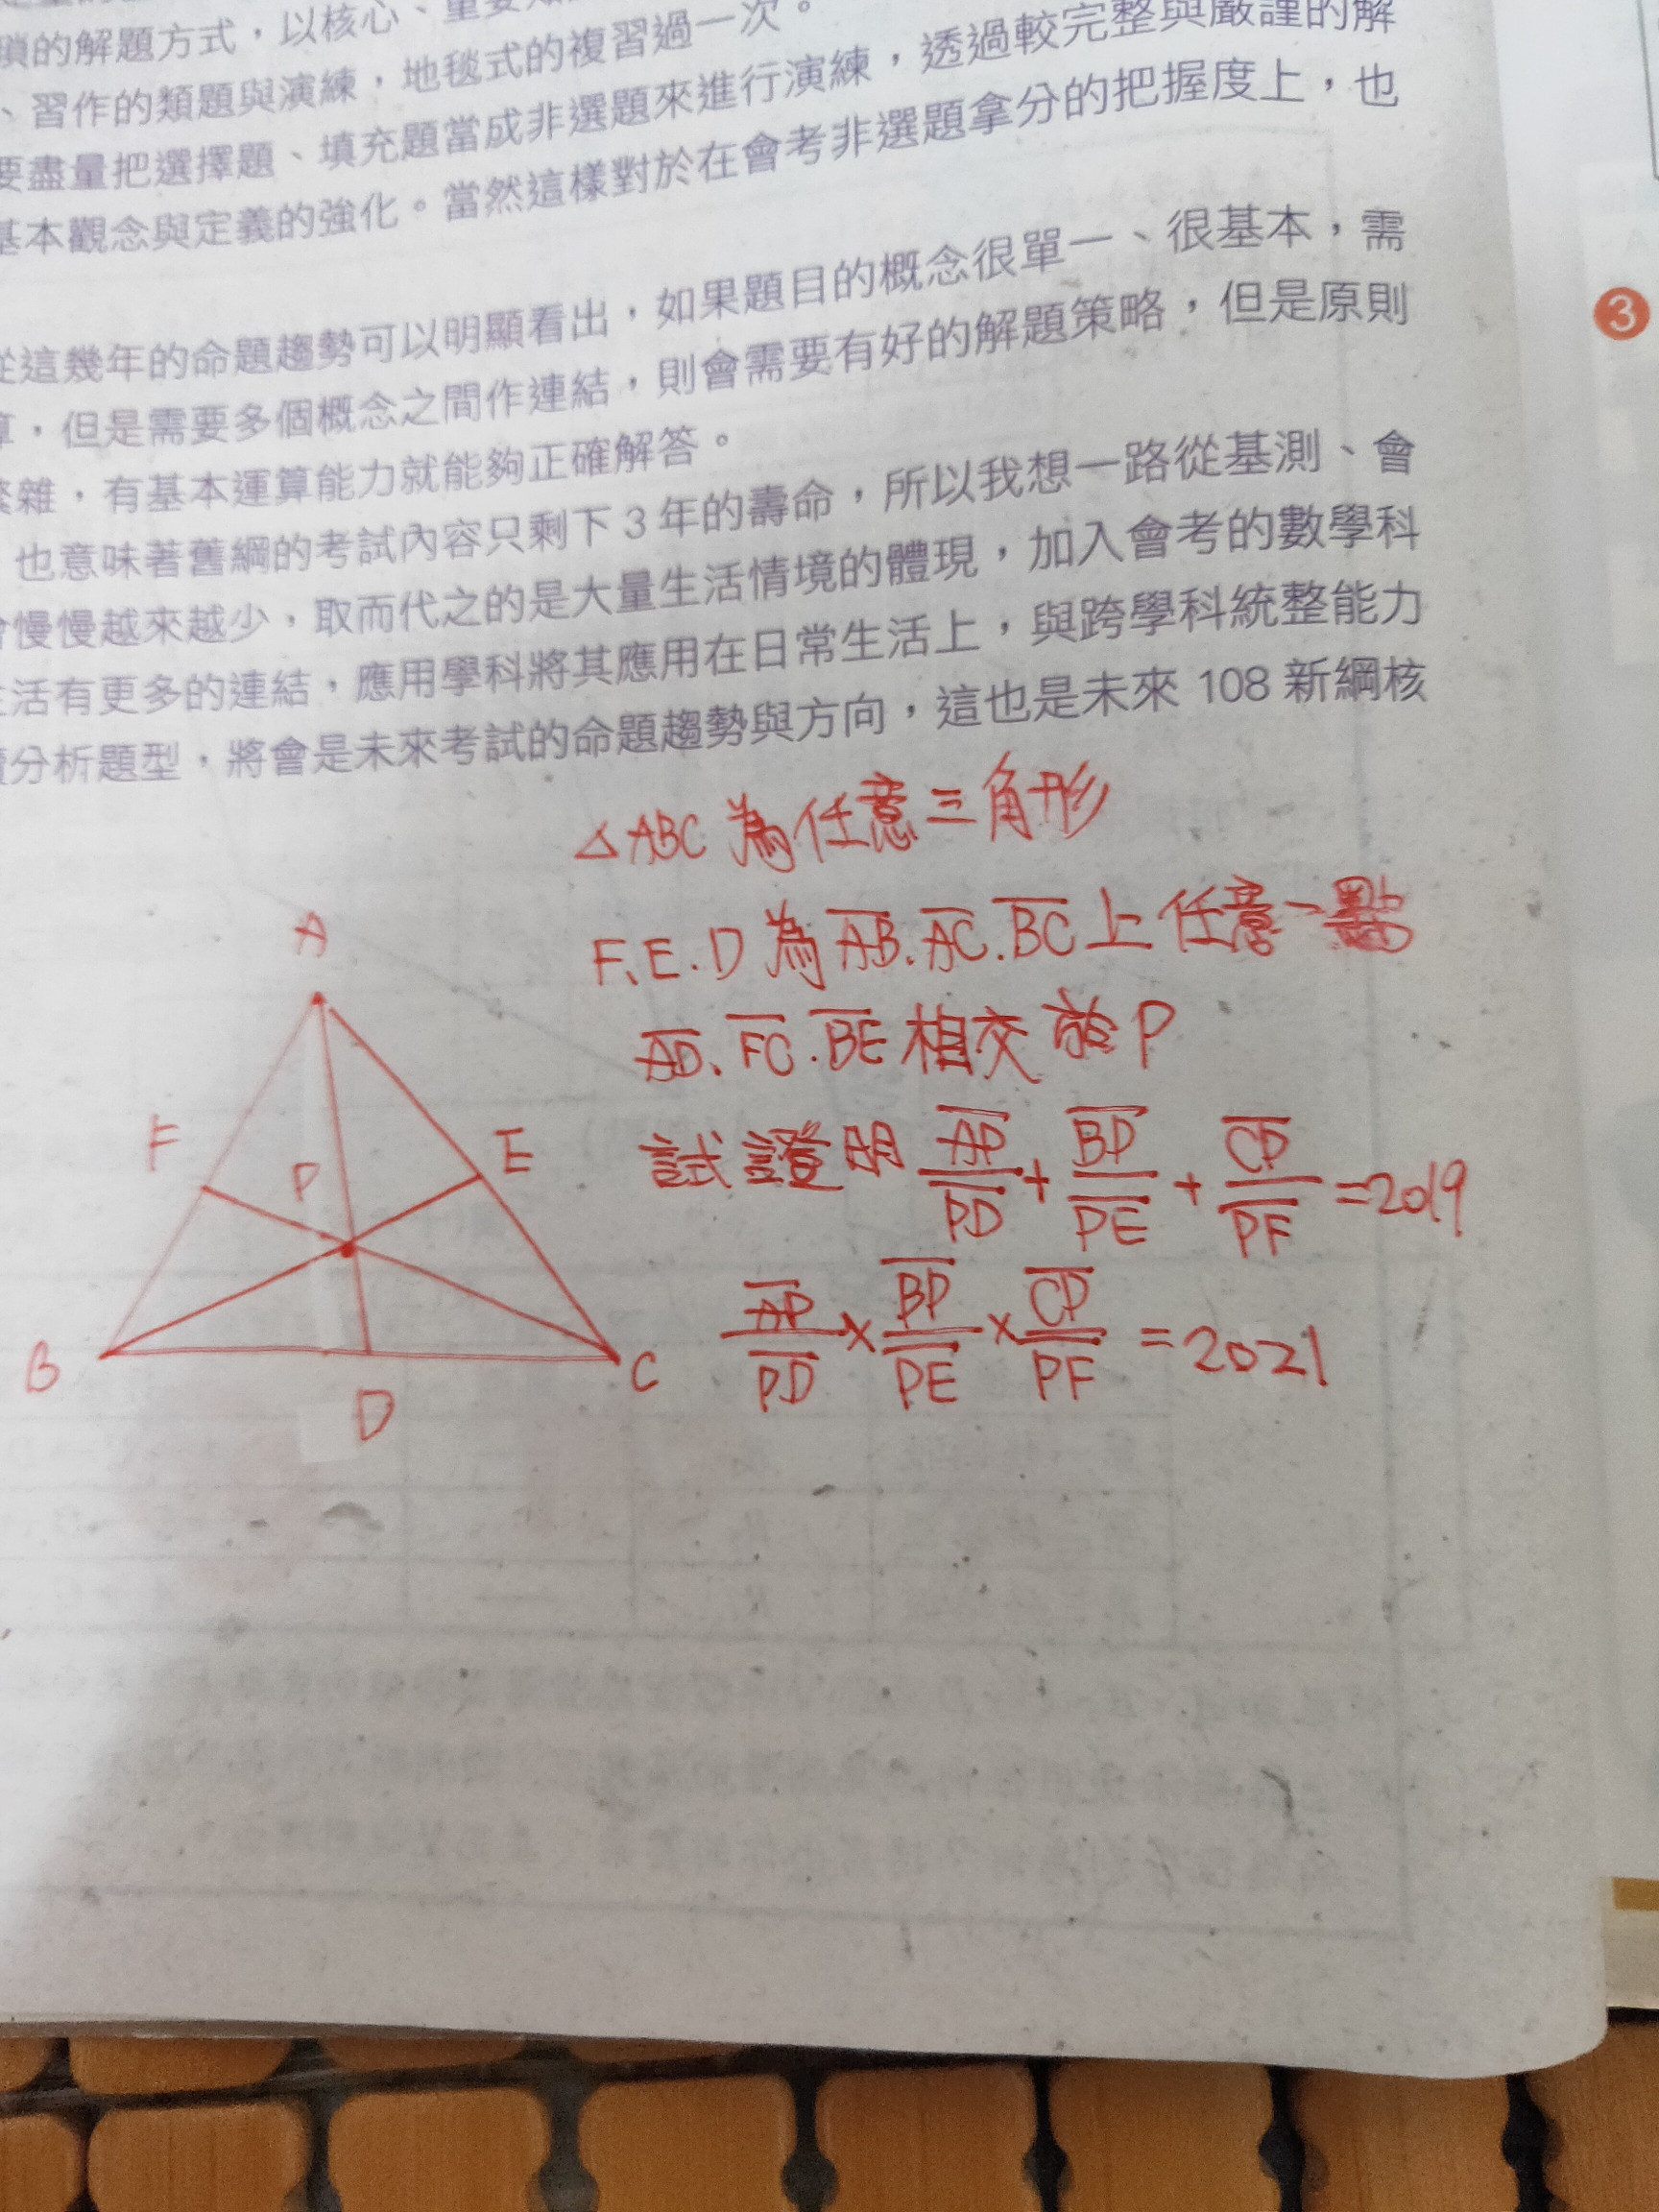 瑣的解題方式，以核心、重要
、習作的類題與演練，地毯式的複習過一次。
要盡量把選擇題、填充題當成非選題來進行演練，透過較完整與嚴謹的解
基本觀念與定義的強化。當然這樣對於在會考非選題拿分的把握度上，也
從這幾年的命題趨勢可以明顯看出，如果題目的概念很單一、很基本，需
算，但是需要多個概念之間作連結，則會需要有好的解題策略，但是原則
繁雜，有基本運算能力就能夠正確解答。
，也意味著舊綱的考試內容只剩下3年的壽命，所以我想一路從基測、會
會慢慢越來越少，取而代之的是大量生活情境的體現，加入會考的數學科
生活有更多的連結，應用學科將其應用在日常生活上，與跨學科統整能力
分析題型，將會是未來考試的命題趨勢與方向，這也是未來 108 新綱核
3
△ABC 為任意三角形
F、E、D 為 A̅B̅、A̅C̅、B̅C̅ 上任意一點
A̅D̅、F̅C̅、B̅E̅ 相交於 P
試證明 A̅P̅/P̅D̅ + B̅P̅/P̅E̅ + C̅P̅/P̅F̅ = 2019
A̅P̅/P̅D̅ × B̅P̅/P̅E̅ × C̅P̅/P̅F̅ = 2021
A
F
E
P
B
C
D